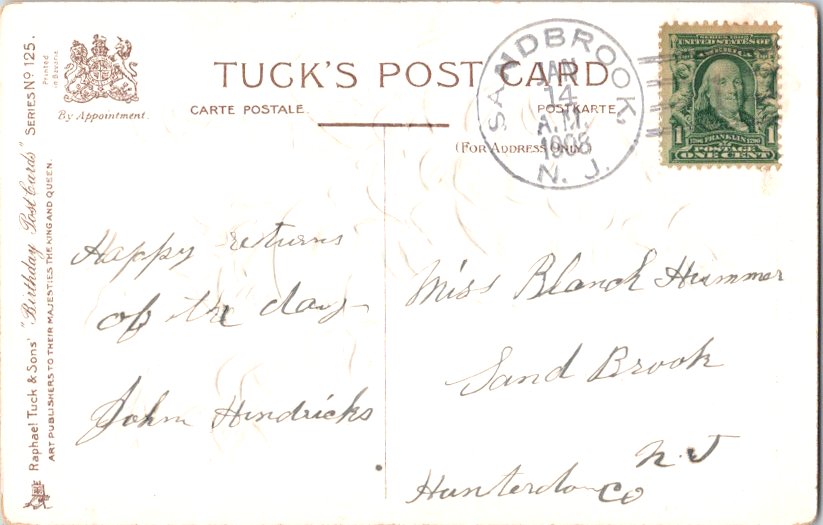 TUCK'S POST CARD
CARTE POSTALE.
POSTKARTE
(FOR ADDRESS ONLY)
Printed
in Bavaria
By Appointment.
Raphael Tuck & Sons' "Birthday Post Cards" SERIES Nº 125.
ART PUBLISHERS TO THEIR MAJESTIES THE KING AND QUEEN.
SANDBROOK,
JAN
14
A.M.
1908
N. J.
SERIES 1902
UNITED STATES OF AMERICA
1 1
1706 FRANKLIN 1790
POSTAGE
ONE CENT
Happy returns
of the day
John Hendricks
Miss Blanch Hummer
Sand Brook
N. J
Hunterdon Co